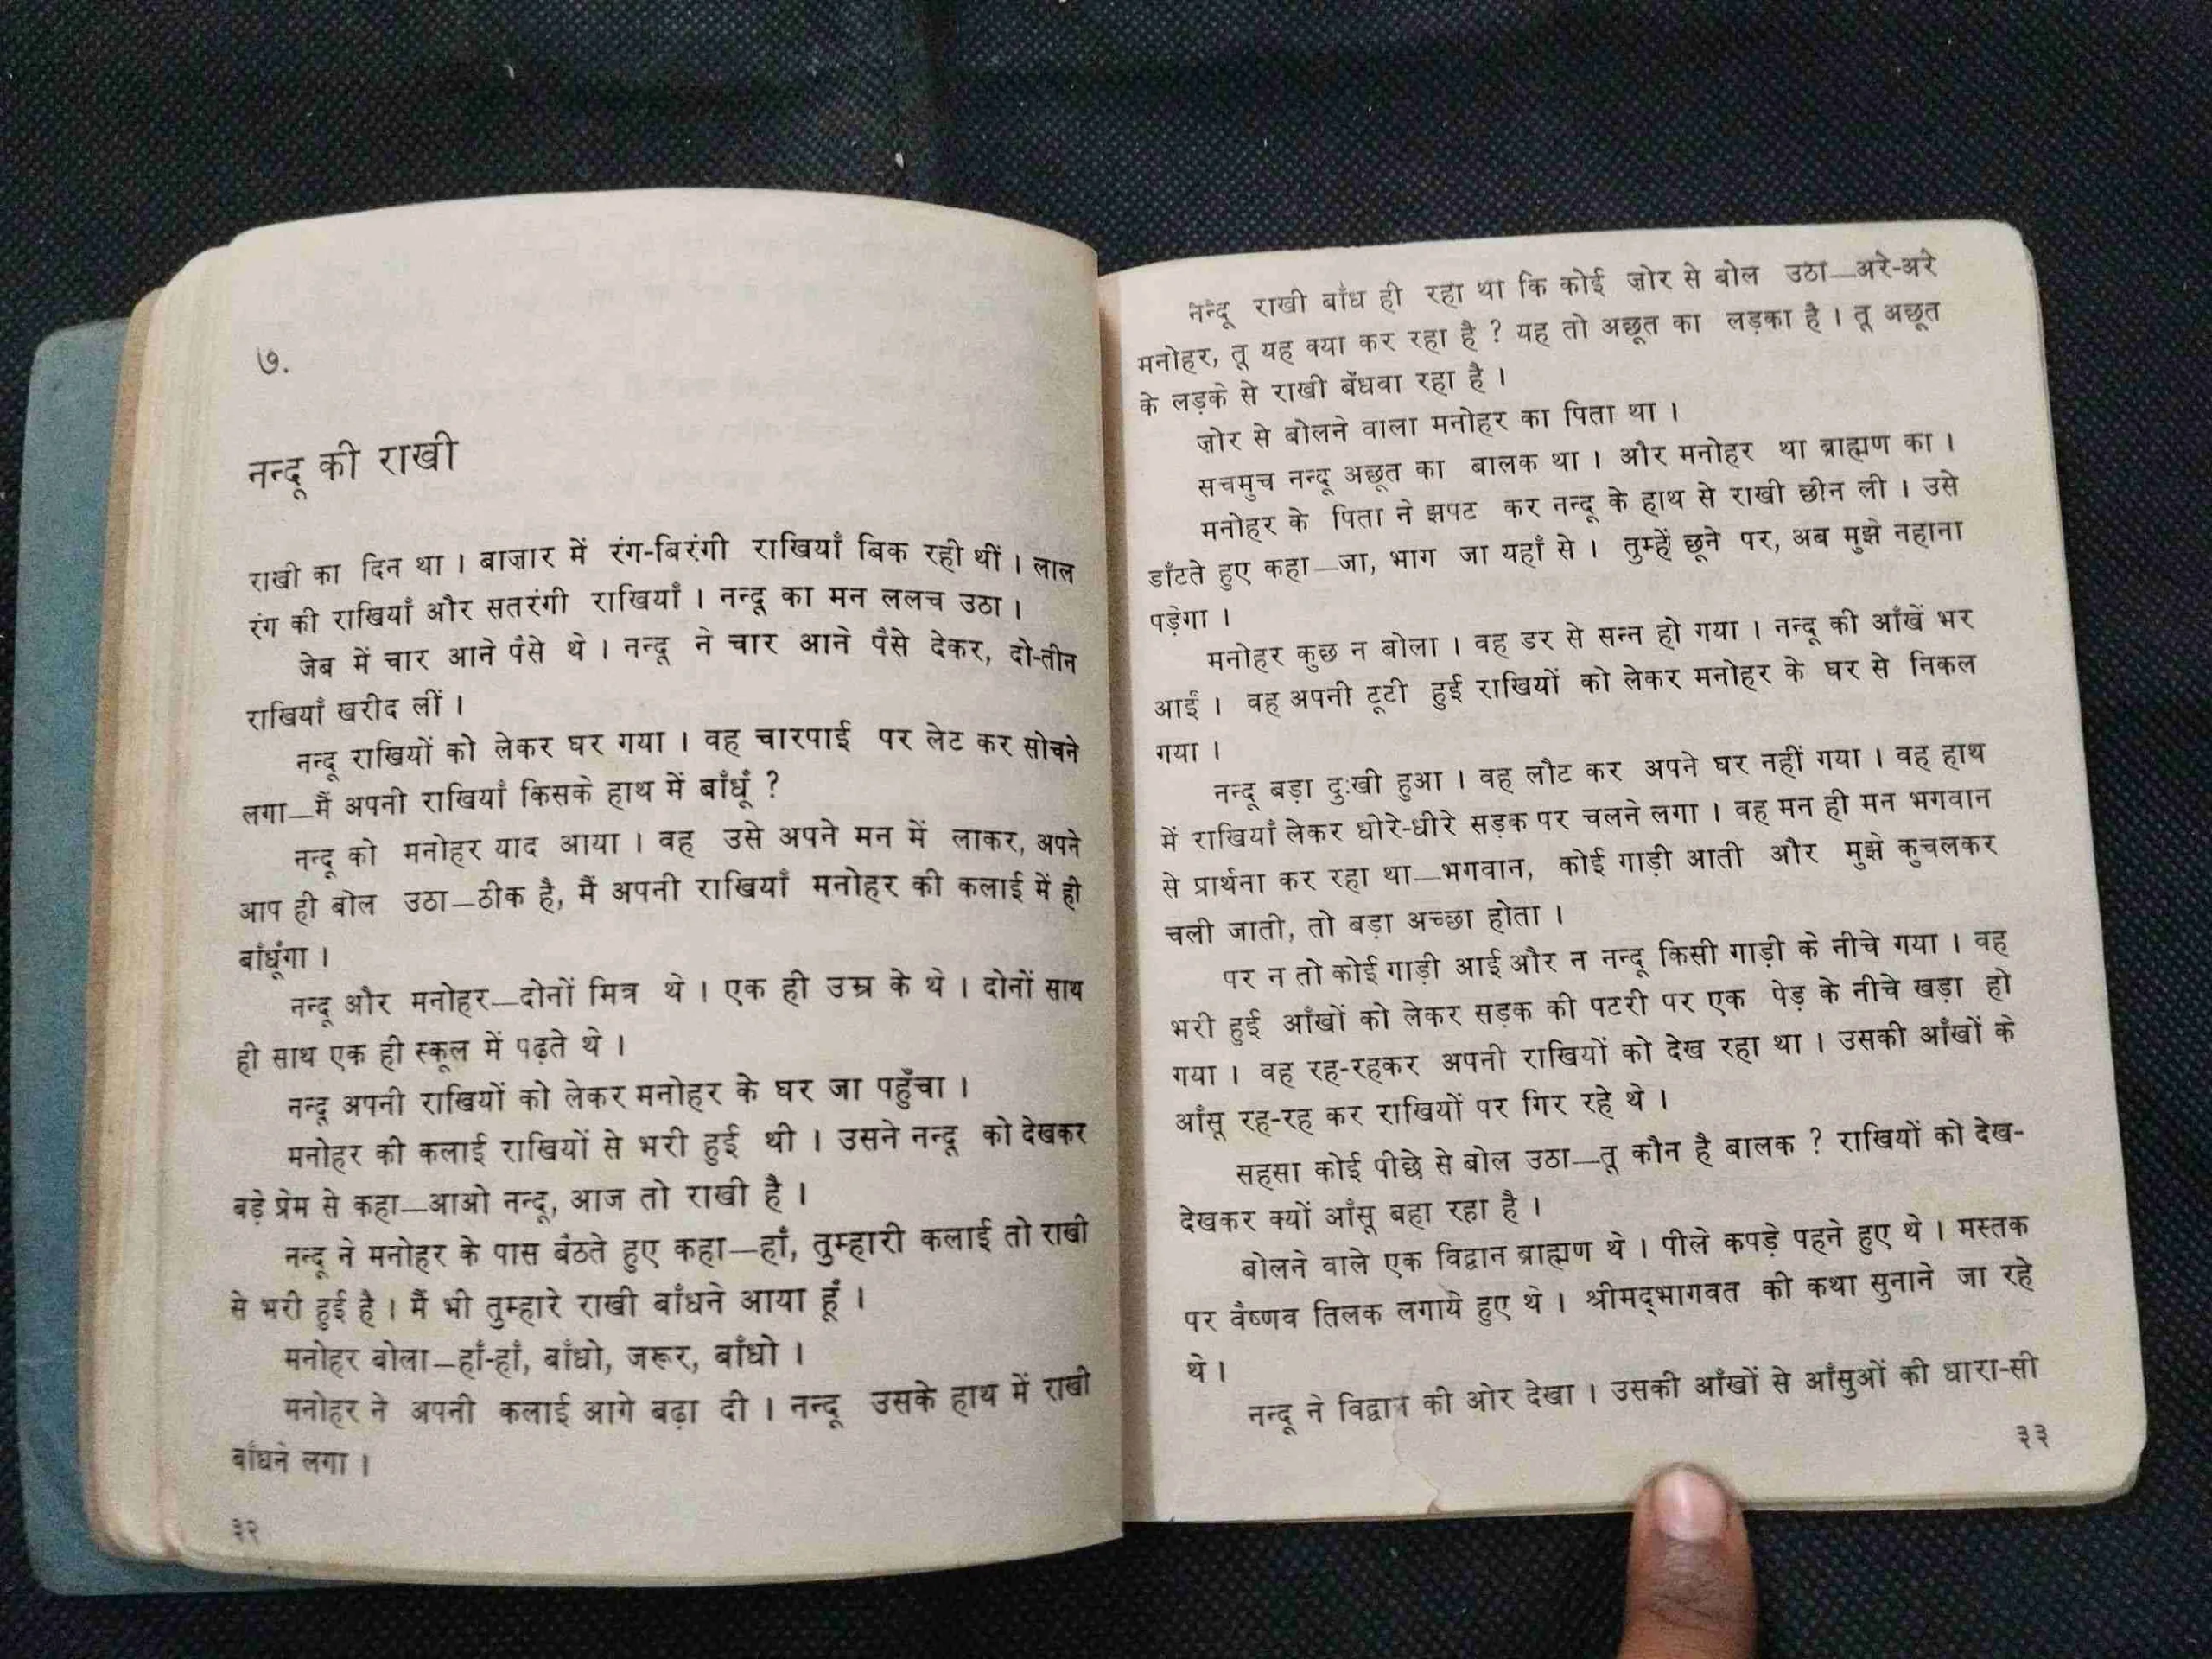 ७.
नन्दू की राखी
राखी का दिन था । बाज़ार में रंग-बिरंगी राखियाँ बिक रही थीं । लाल
रंग की राखियाँ और सतरंगी राखियाँ । नन्दू का मन ललच उठा ।
जेब में चार आने पैसे थे । नन्दू ने चार आने पैसे देकर, दो-तीन
राखियाँ खरीद लीं ।
नन्दू राखियों को लेकर घर गया । वह चारपाई पर लेट कर सोचने
लगा—मैं अपनी राखियाँ किसके हाथ में बाँधूँ ?
नन्दू को मनोहर याद आया । वह उसे अपने मन में लाकर, अपने
आप ही बोल उठा—ठीक है, मैं अपनी राखियाँ मनोहर की कलाई में ही
बाँधूंगा ।
नन्दू और मनोहर—दोनों मित्र थे । एक ही उम्र के थे । दोनों साथ
ही साथ एक ही स्कूल में पढ़ते थे ।
नन्दू अपनी राखियों को लेकर मनोहर के घर जा पहुँचा ।
मनोहर की कलाई राखियों से भरी हुई थी । उसने नन्दू को देखकर
बड़े प्रेम से कहा—आओ नन्दू, आज तो राखी है ।
नन्दू ने मनोहर के पास बैठते हुए कहा—हाँ, तुम्हारी कलाई तो राखी
से भरी हुई है । मैं भी तुम्हारे राखी बाँधने आया हूँ ।
मनोहर बोला—हाँ-हाँ, बाँधो, जरूर, बाँधो ।
मनोहर ने अपनी कलाई आगे बढ़ा दी । नन्दू उसके हाथ में राखी
बाँधने लगा ।
३२
नन्दू राखी बाँध ही रहा था कि कोई ज़ोर से बोल उठा—अरे-अरे
मनोहर, तू यह क्या कर रहा है ? यह तो अछूत का लड़का है । तू अछूत
के लड़के से राखी बँधवा रहा है ।
ज़ोर से बोलने वाला मनोहर का पिता था ।
सचमुच नन्दू अछूत का बालक था । और मनोहर था ब्राह्मण का ।
मनोहर के पिता ने झपट कर नन्दू के हाथ से राखी छीन ली । उसे
डाँटते हुए कहा—जा, भाग जा यहाँ से । तुम्हें छूने पर, अब मुझे नहाना
पड़ेगा ।
मनोहर कुछ न बोला । वह डर से सन्न हो गया । नन्दू की आँखें भर
आईं । वह अपनी टूटी हुई राखियों को लेकर मनोहर के घर से निकल
गया ।
नन्दू बड़ा दुःखी हुआ । वह लौट कर अपने घर नहीं गया । वह हाथ
में राखियाँ लेकर धीरे-धीरे सड़क पर चलने लगा । वह मन ही मन भगवान
से प्रार्थना कर रहा था—भगवान, कोई गाड़ी आती और मुझे कुचलकर
चली जाती, तो बड़ा अच्छा होता ।
पर न तो कोई गाड़ी आई और न नन्दू किसी गाड़ी के नीचे गया । वह
भरी हुई आँखों को लेकर सड़क की पटरी पर एक पेड़ के नीचे खड़ा हो
गया । वह रह-रहकर अपनी राखियों को देख रहा था । उसकी आँखों के
आँसू रह-रह कर राखियों पर गिर रहे थे ।
सहसा कोई पीछे से बोल उठा—तू कौन है बालक ? राखियों को देख-
देखकर क्यों आँसू बहा रहा है ।
बोलने वाले एक विद्वान ब्राह्मण थे । पीले कपड़े पहने हुए थे । मस्तक
पर वैष्णव तिलक लगाये हुए थे । श्रीमद्‌भागवत की कथा सुनाने जा रहे
थे ।
नन्दू ने विद्वान की ओर देखा । उसकी आँखों से आँसुओं की धारा-सी
३३